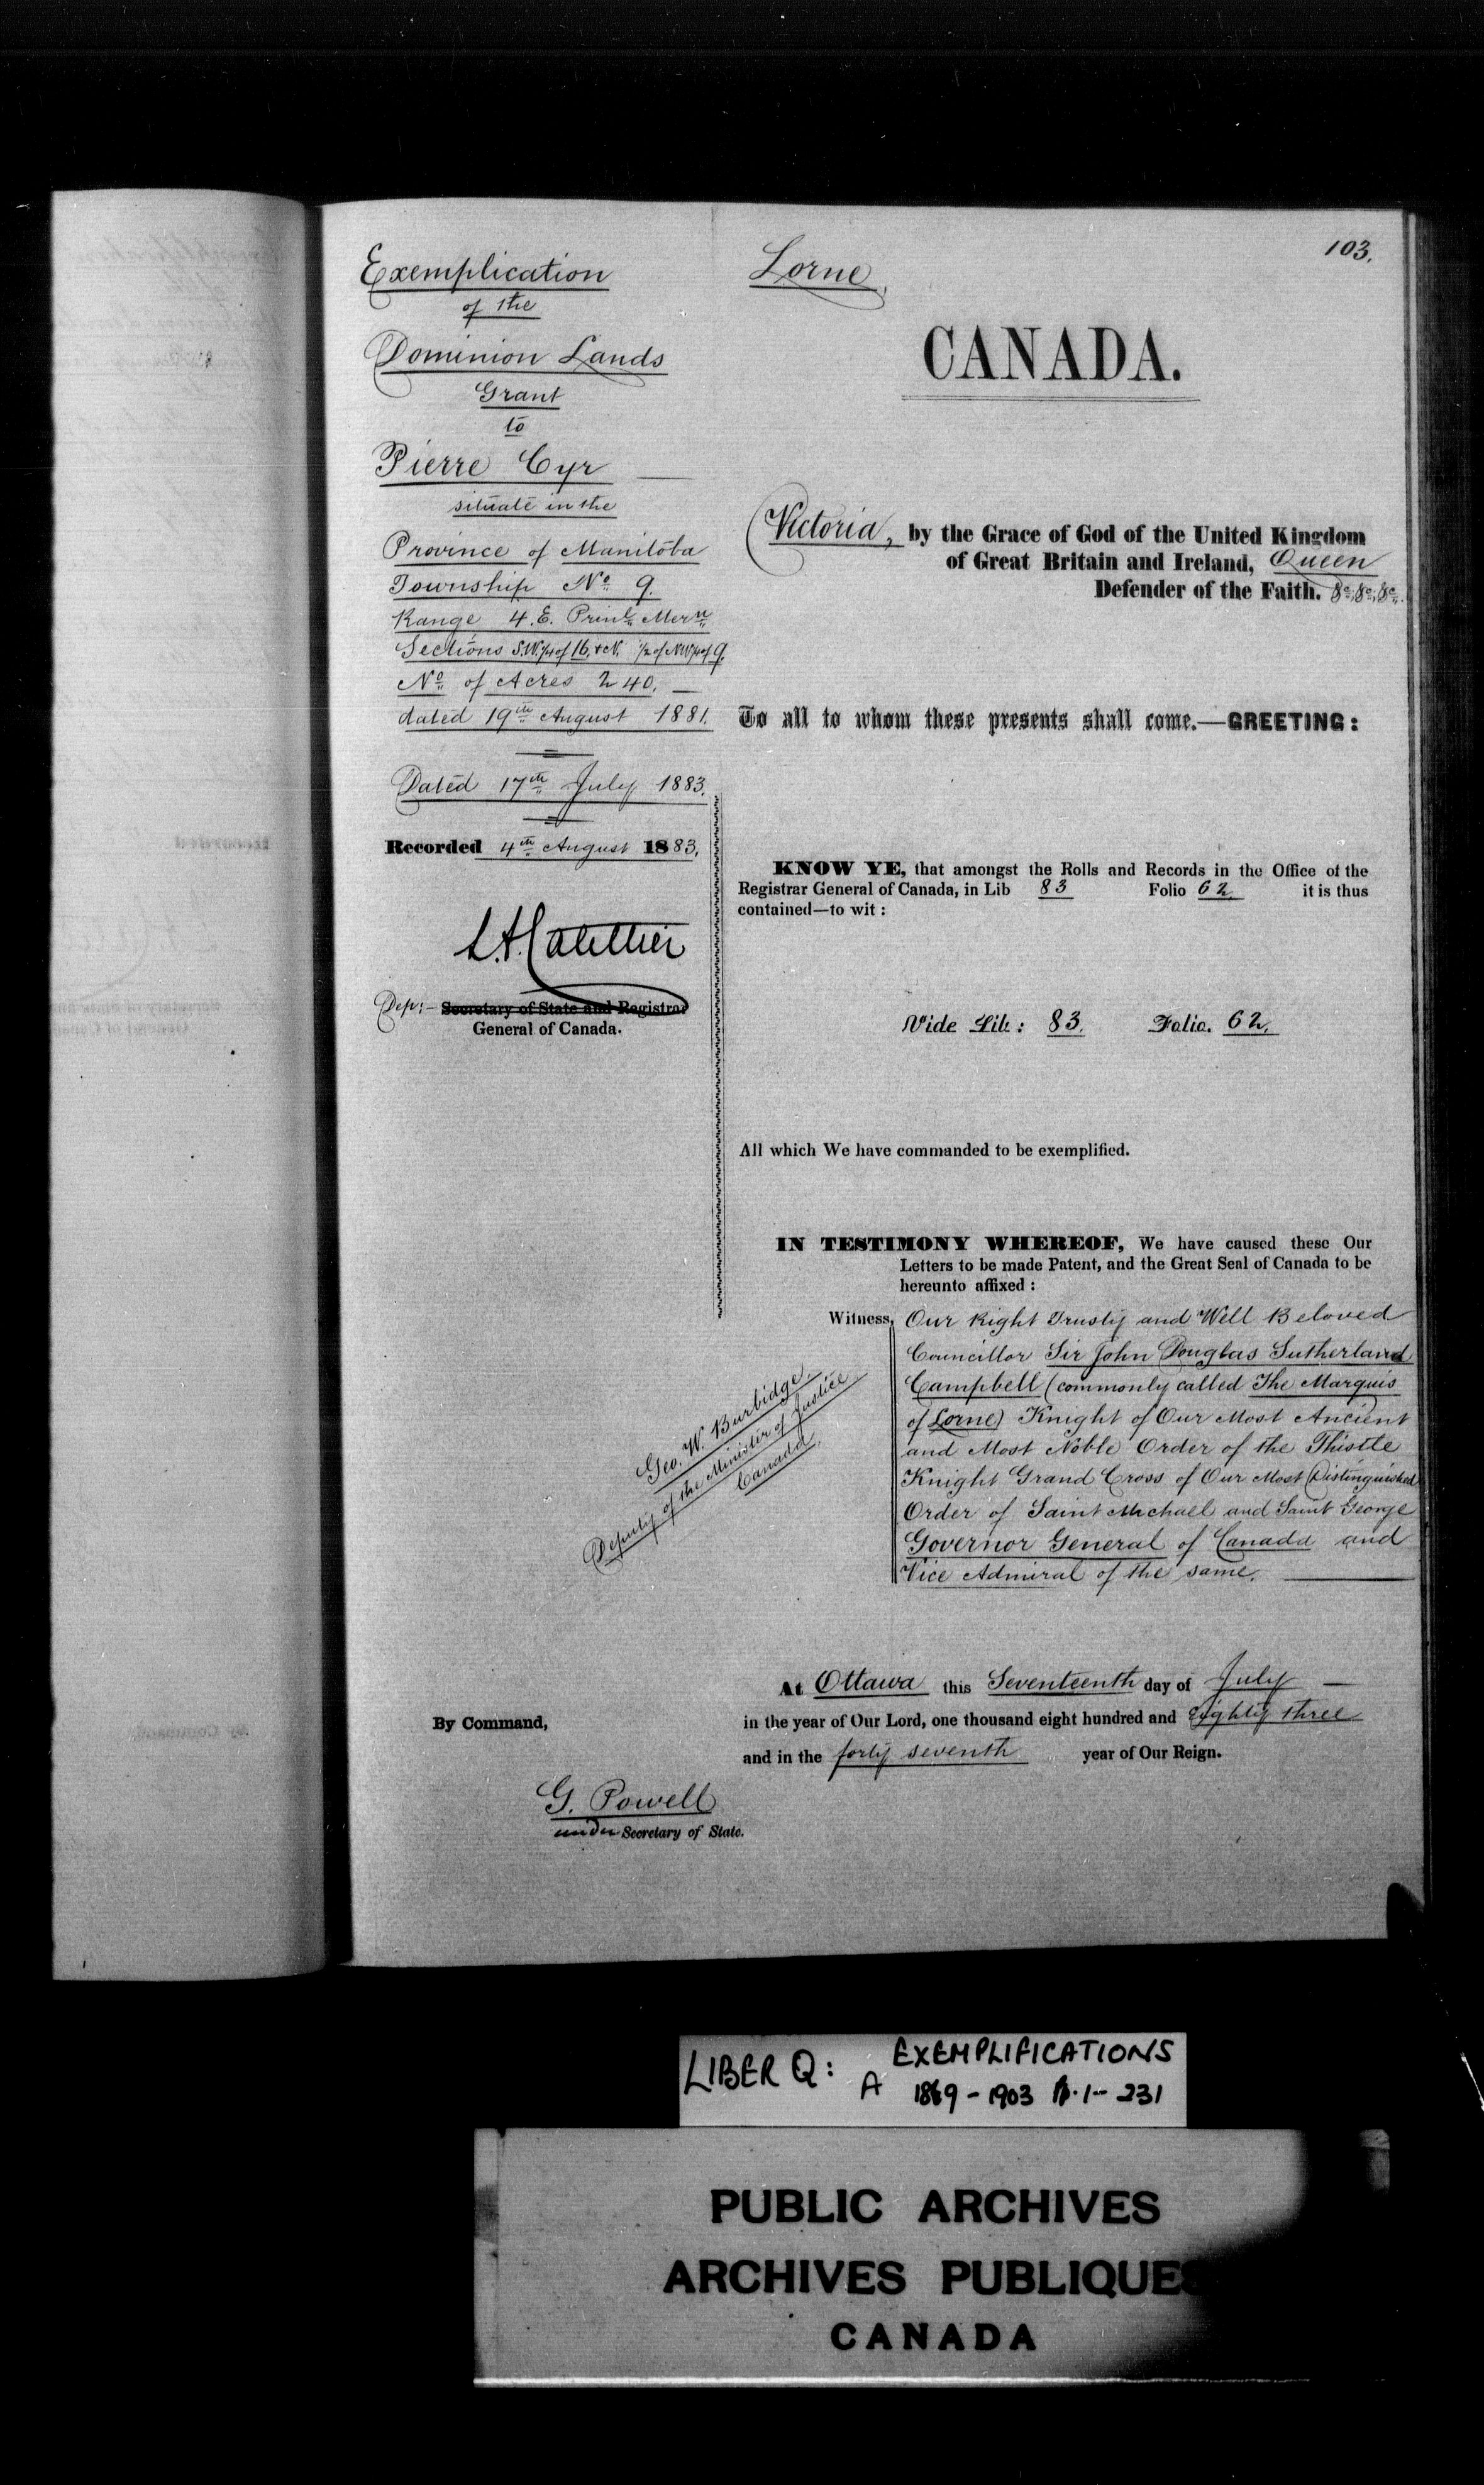 103.
Exemplication
of the
Dominion Lands
Grant
to
Pierre Cyr
situate in the
Province of Manitoba
Township No 9.
Range 4. E. Prinl Mern
Sections S.W. 1/4 of 16, & N. 1/2 of N.W 1/4 of 9.
No of Acres 240.
dated 19th August 1881.
Dated 17th July 1883.
Recorded 4th August 1883.
Dep:- Secretary of State and Registrar
General of Canada.
Lorne,
CANADA.
Victoria, by the Grace of God of the United Kingdom
of Great Britain and Ireland, Queen
Defender of the Faith. &c, &c, &c.
To all to whom these presents shall come.—GREETING:
KNOW YE, that amongst the Rolls and Records in the Office of the
Registrar General of Canada, in Lib 83 Folio 62. it is thus
contained—to wit:
Vide Lib: 83. Folio. 62.
All which We have commanded to be exemplified.
IN TESTIMONY WHEREOF, We have caused these Our
Letters to be made Patent, and the Great Seal of Canada to be
hereunto affixed:
Witness, Our Right Trusty and Well Beloved
Councillor Sir John Douglas Sutherland
Campbell (commonly called The Marquis
of Lorne) Knight of Our Most Ancient
and Most Noble Order of the Thistle
Knight Grand Cross of Our Most Distinguished
Order of Saint Michael and Saint George
Governor General of Canada and
Vice Admiral of the same.
Geo. W. Burbidge,
Deputy of the Minister of Justice
Canada.
At Ottawa this Seventeenth day of July
in the year of Our Lord, one thousand eight hundred and Eighty three
and in the forty seventh year of Our Reign.
By Command,
G. Powell
under Secretary of State.
LIBER Q: A EXEMPLIFICATIONS
1869-1903 p.1-231
PUBLIC ARCHIVES
ARCHIVES PUBLIQUES
CANADA